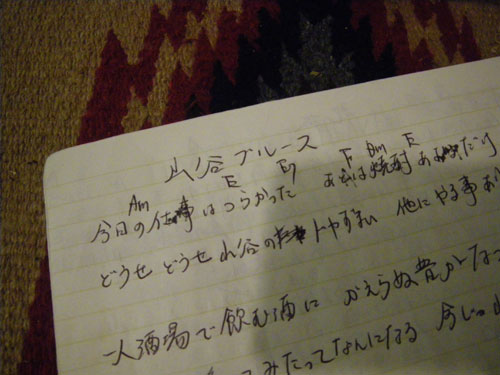 山谷ブルース
Am E E7 F Am E
今日の仕事はつらかった あとは焼酎 あおるだけ
どうせ どうせ 山谷の ドヤずまい 他にやる事
一人酒場で飲む酒に かえらぬ昔がなつ
みたってなんになる 今じゃ